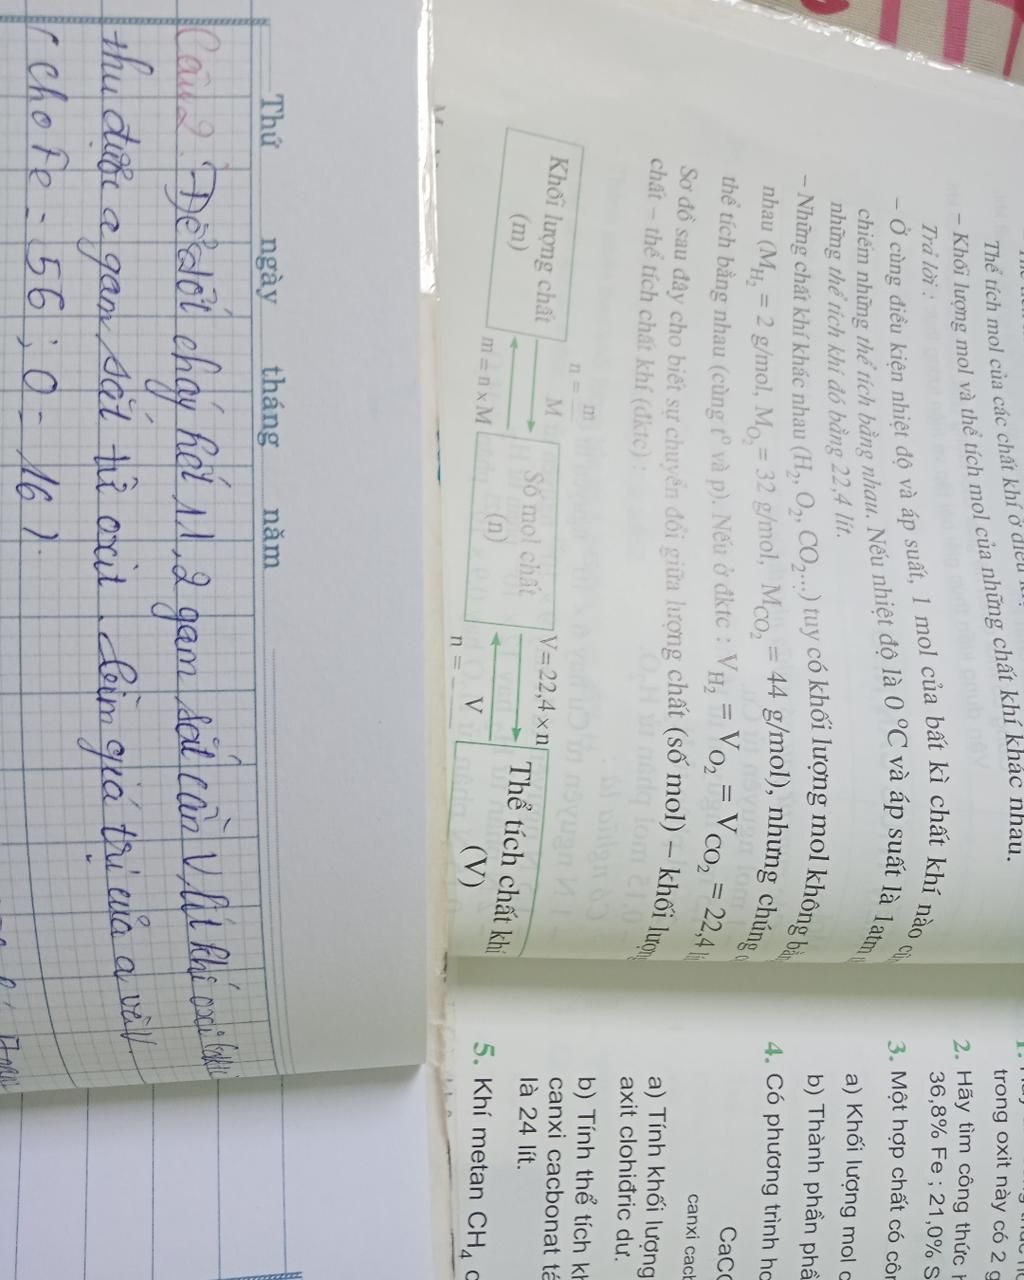 Thể tích mol của các chất khí ở điều
– Khối lượng mol và thể tích mol của những chất khí khác nhau.
Trả lời :
– Ở cùng điều kiện nhiệt độ và áp suất, 1 mol của bất kì chất khí nào
chiếm những thể tích bằng nhau. Nếu nhiệt độ là 0 °C và áp suất là 1 atm
những thể tích khí đó bằng 22,4 lít.
– Những chất khí khác nhau (H₂, O₂, CO₂...) tuy có khối lượng mol không
nhau (M_H₂ = 2 g/mol, M_O₂ = 32 g/mol, M_CO₂ = 44 g/mol), nhưng chúng
thể tích bằng nhau (cùng t⁰ và p). Nếu ở đktc : V_H₂ = V_O₂ = V_CO₂ = 22,4
Sơ đồ sau đây cho biết sự chuyển đổi giữa lượng chất (số mol) – khối lượng
chất – thể tích chất khí (đktc) :
Khối lượng chất
(m)
n = m/M
m = n × M
Số mol chất
(n)
V=22,4 × n
n = V
Thể tích chất khí
(V)
trong oxit này có 2 g
2. Hãy tìm công thức
36,8% Fe ; 21,0% S
3. Một hợp chất có
a) Khối lượng mol
b) Thành phần
4. Có phương trình
CaC
canxi
a) Tính khối lượng
axit clohiđric dư.
b) Tính thể tích
canxi cacbonat
là 24 lít.
5. Khí metan CH₄
Thứ ngày tháng năm
Câu 2. Để đốt cháy hết 11,2 gam sắt cần V lít khí oxi
thu được a gam sắt từ oxit. Tìm giá trị của a và V.
( cho Fe = 56 ; O = 16 ).